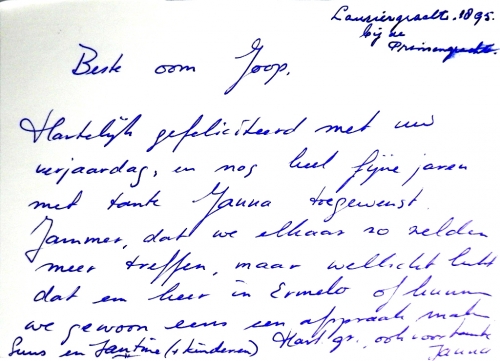 Lauriergracht. 1895.
bij de
Prinsengracht.
Beste oom Joop,
Hartelijk gefeliciteerd met uw
verjaardag, en nog heel fijne jaren
met tante Janna toegewenst.
Jammer, dat we elkaar zo zelden
meer treffen, maar wellicht lukt
dat een keer in Ermelo of kunnen
we gewoon eens een afspraak maken
Hart. gr., ook voor tante
Janna
Guus en Jantine (+ kinderen)